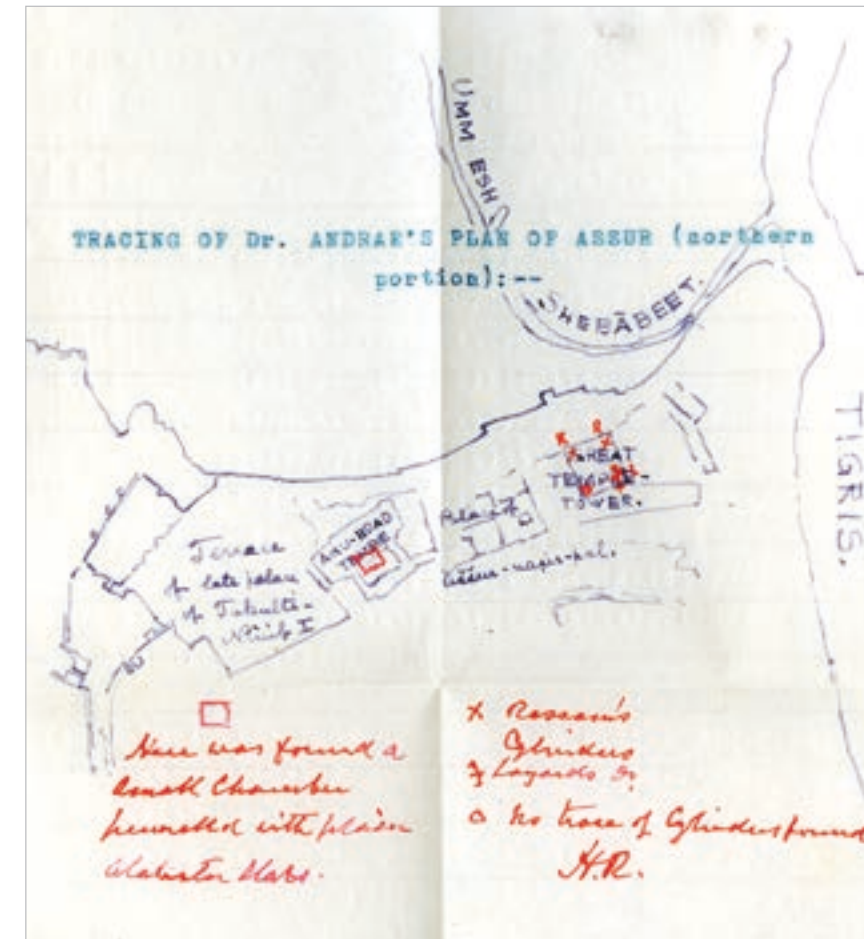 UMM ESH
TRACING OF Dr. ANDRAE'S PLAN OF ASSUR (northern
portion):--
SHEBĀBEET.
TIGRIS.
GREAT
TEMPLE-
TOWER.
Palace of
Assur-nasir-pal.
ANU-HDAD
TEMPLE
Terrace
of late palace
of Tukulti-
Ninib I
Here was found a
small Chamber
pannelled with plain
alabaster slabs.
x Rassam's
Cylinders
Layards Do.
o No trace of Cylinders found
H.R.